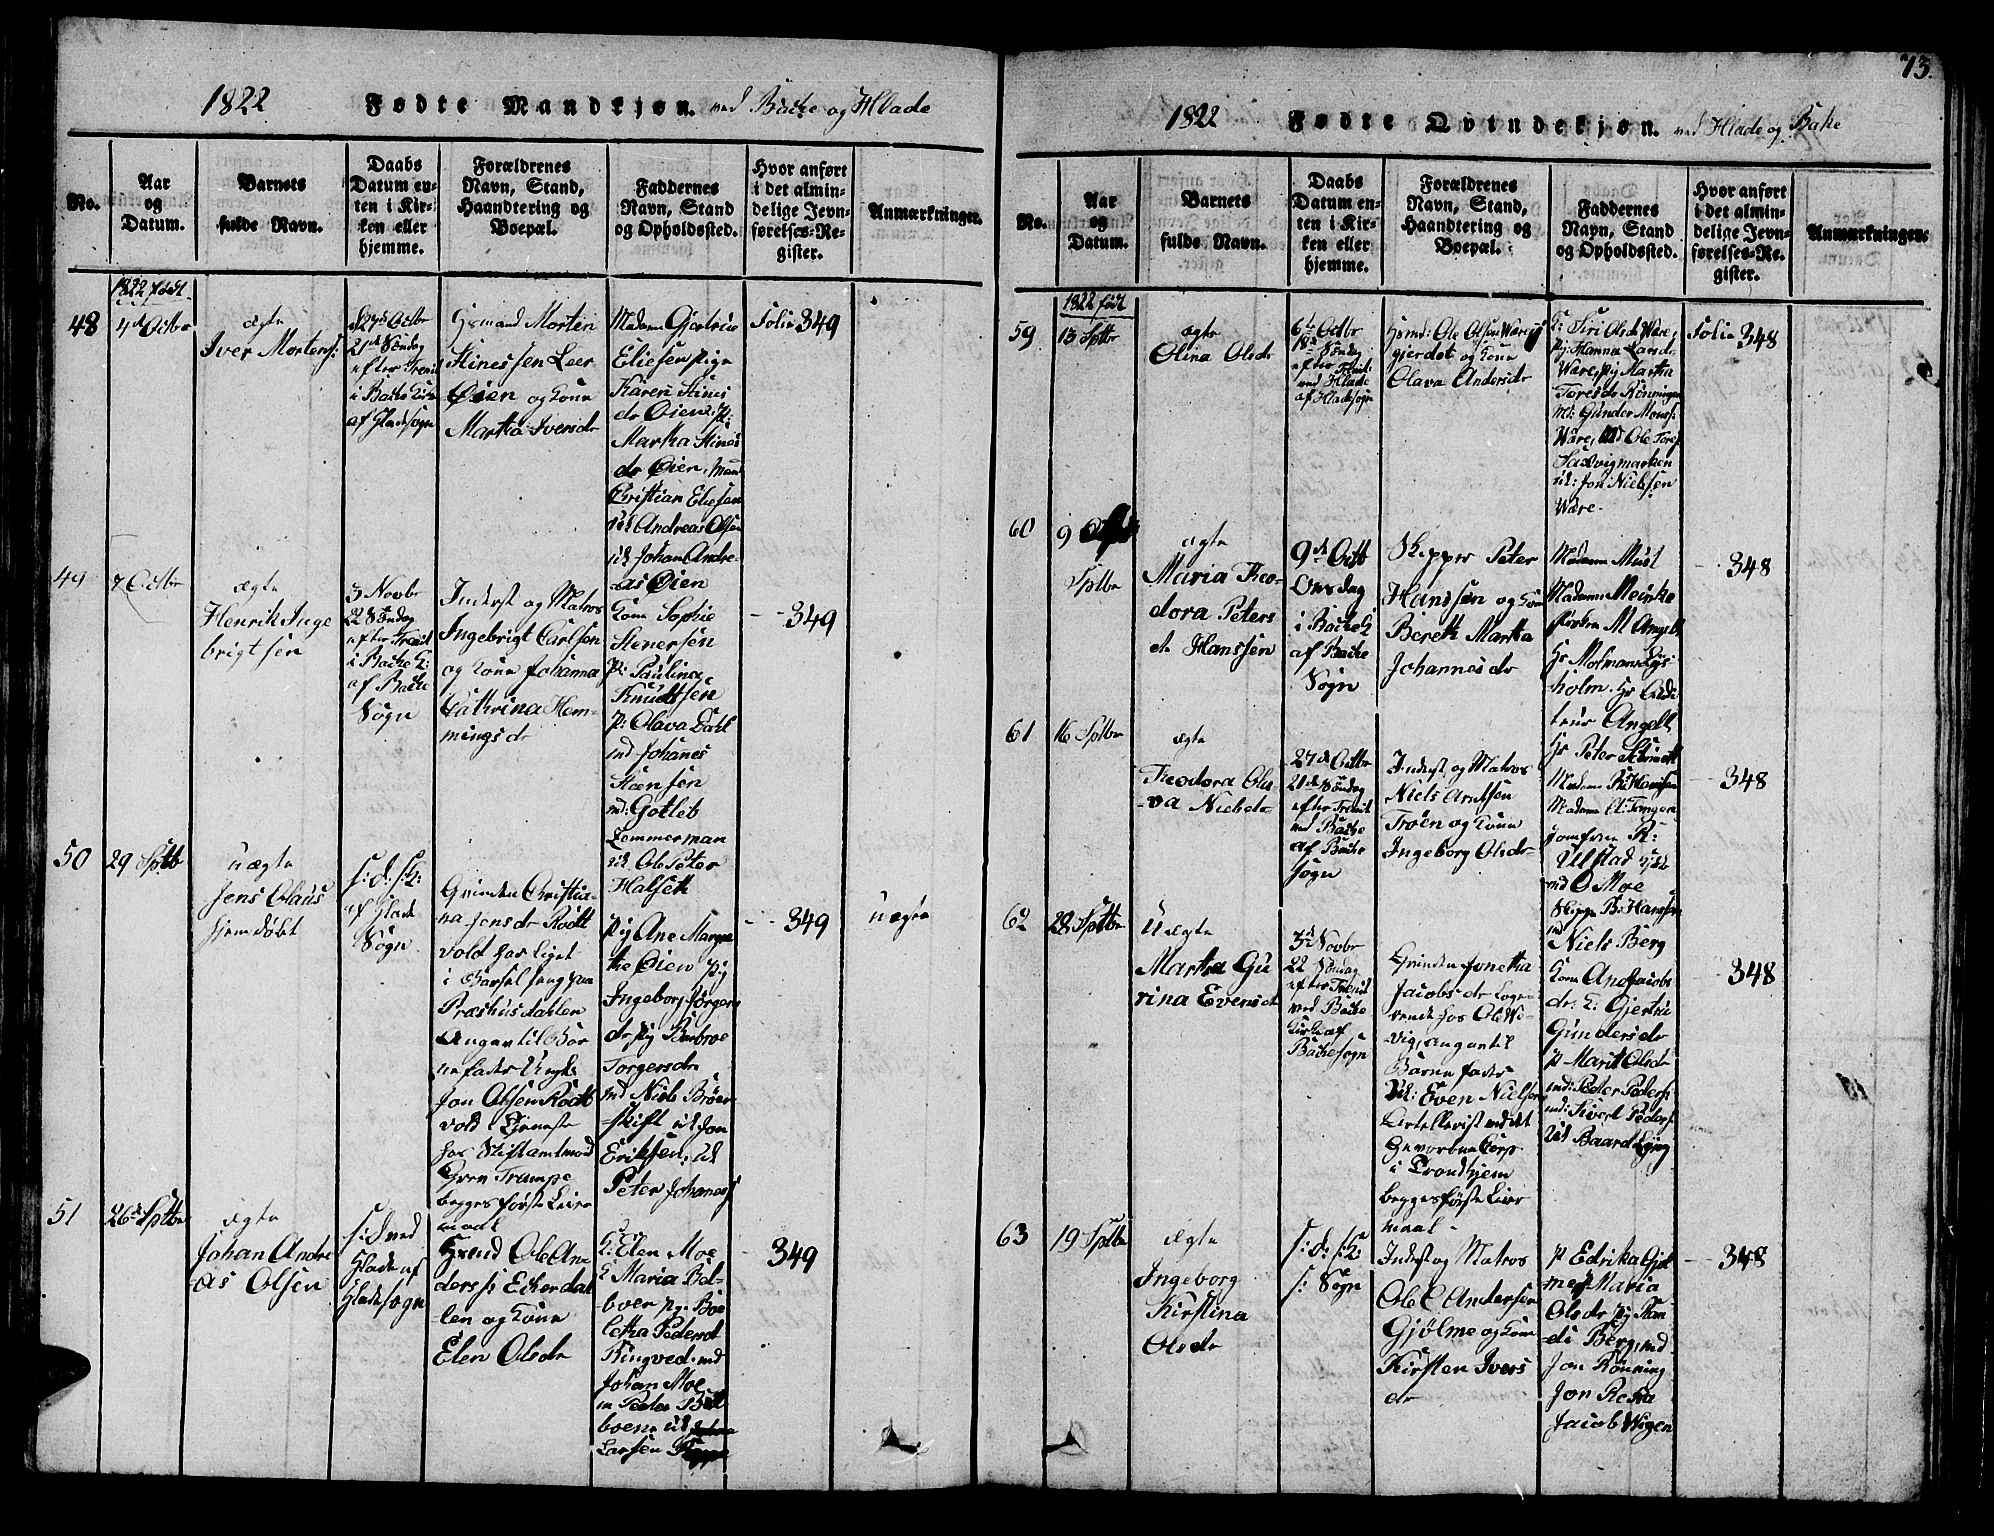 1822 Fødte Mandkjøn. ved Backe og Hlade
No.
Aar
og
Datum.
Barnets
fulde Navn.
Daabs
Datum en-
ten i Kir-
ken eller
hjemme.
Forældrenes
Navn, Stand,
Haandtering og
Boepæl.
Faddernes
Navn, Stand
og Opholdssted.
Hvor anført
i det almin-
delige Jevn-
førelses-Re-
gister.
Anmærkninger.
48
1822 født
4de Octbr
ægte
Iver Mortens:
27de Octbr
21de Søndag
efter Trenit
i Backe Kirke
af Hladesogn
Huusmand Morten
Stinessen Leer
Øien og Kone
Martha Iversdr
Madame Gjertrue
Eliesen pige
Karen Stines
dr Øien: P:
Martha Stines
dr Øien, Mand
Christian Eliesen
uk Andreas Olsen
uk Johan Andre-
as Øien
Folio 349
49
7 Octbr
ægte
Henrik Inge
brigtsen
3 Novbr
22 Søndag
efter Trenit
i Backe K:
af Backe
Sogn
Inderst og Matros
Ingebrigt Carlsen
og Kone Johanna
Cathrina Hem-
mingsdr
Kone Sophie
Stenersen
P: Paulina
Knudtsen
P: Olava Dahl
md Johanes
Steensen
md: Gotleb
Lemmerman
uk Ole Peter
Halseth
349
50
29 Sptb
uægte
Jens Olaus
hjemdøbt
s: d: s: K:
af Hlade
Sogn
Qvinden Christia-
na Jensdr Rødt
vold har liget
i Barselseng paa
Præsthusdahlen
Angav til Bar
nefader Ungk:
Jon Olsen Rødt
vold i Tjeneste
hos Stiftamtmand
Grev Trampe
begges første Leier
maal
Pig Ane Margre
the Øien pig
Ingeborg Jørgens
dr pig Barbroe
Torgersdr
md Niels Brøer
skift uk Jon
Eriksen: uk
Peter Johaness
349
uægte
51
26de Sptbr
ægte
Johan Andre
as Olsen
s: d ved
Hlade af
Hladesogn
Huusmd Ole An-
derss: Eckerdah
len og Kone
Elen Olsdr
K: Elen Moe
K: Maria Bal-
boer pg: Bo-
letha Pedersdr
Ringved: md
Johan Moe
m Peder Bal
boen: uk
Larsen
349
73.
1822 Fødte Qvindekjøn. ved Hlade og Bake
No.
Aar
og
Datum.
Barnets
fulde Navn.
Daabs
Datum en-
ten i Kir-
ken eller
hjemme.
Forældrenes
Navn, Stand,
Haandtering og
Boepæl.
Faddernes
Navn, Stand
og Opholdssted.
Hvor anført
i det almin-
delige Jevn-
førelses-Re-
gister.
Anmærkninger.
59
1822 født
13 Sptbr
ægte
Olina Olsdr
6te Octbr
18de Søndag
efter Trenit:
ved Hlade
af Hladsogn
Huusmd: Ole Olsen Ware
gjerdet og Kone
Olava Andersdr
K: Siri Olsdr Ware,
Pg: Hanna Larsdr
Ware, Pig Martha
Toresdr Rønningen
Md: Gunder Monss:
Ware, Md Ole Tores
Sadvigmarken
uk: Jon Nielsen
Ware.
Folie 348
60
9
Sptbr
ægte
Maria Theo-
dora Peters
dr Hanssen
9de Octt
Onsdag
i Backe K
af Backe
Sogn
Skipper Peter
Hanssen og Kone
Bereth Martha
Johannesdr
Madame Must
Madamm Meinke
M Angell
Hr Molmans
holm. Hr Audi
teur Angell
Hr Peter Schmidt
348
61
16 Sptbr
ægte
Theodora Ola-
va Nielsdr
27de Octbr
21de Søndag
efter Trenit
ved Backe
af Backe
Sogn
Inderst og Matros
Niels Arntsen
Troen og Kone
Ingeborg Olsdr
Madame Hanssen
Madame
Jomfrue
Ulstad
md O Moe
Skipp P: Hanssen
md
Niels Berg
348
62
28 Sptbr
Uægte
Martha Gu
rina Evensdr
3de Novbr
22 Søndag
efter Trenit
ved Backe
Kirke af
Backesogn
Qvinden Jonetha
Jacobsdr Loge-
rende hos Ole Wi-
vig, angav til
Barnefader
Uk: Even Nielsen
Artellerist ved det
Gevorbne Corps
i Trondhjem
begges første Leier
maal.
Kone Ane Jacobs
dr. K: Gjertru
Gundersdr
P Marit Olsdr
md: Peter Peders:
md: Sivert Peders:
Uk Baard
348
63
19 Sptbr
ægte
Ingeborg
Kirstina
Olsdr
s: d: s: K:
s: Sogn
Inderst og Matros
Ole C Andersen
Gjølme og Kone
Kirsten Ivers
dr
P Edrika Gjøl
me, P Maria
Olsdr pg Ran-
di Berg, md
Jon Rønning
Jon Resta
Jacob Wigen
348